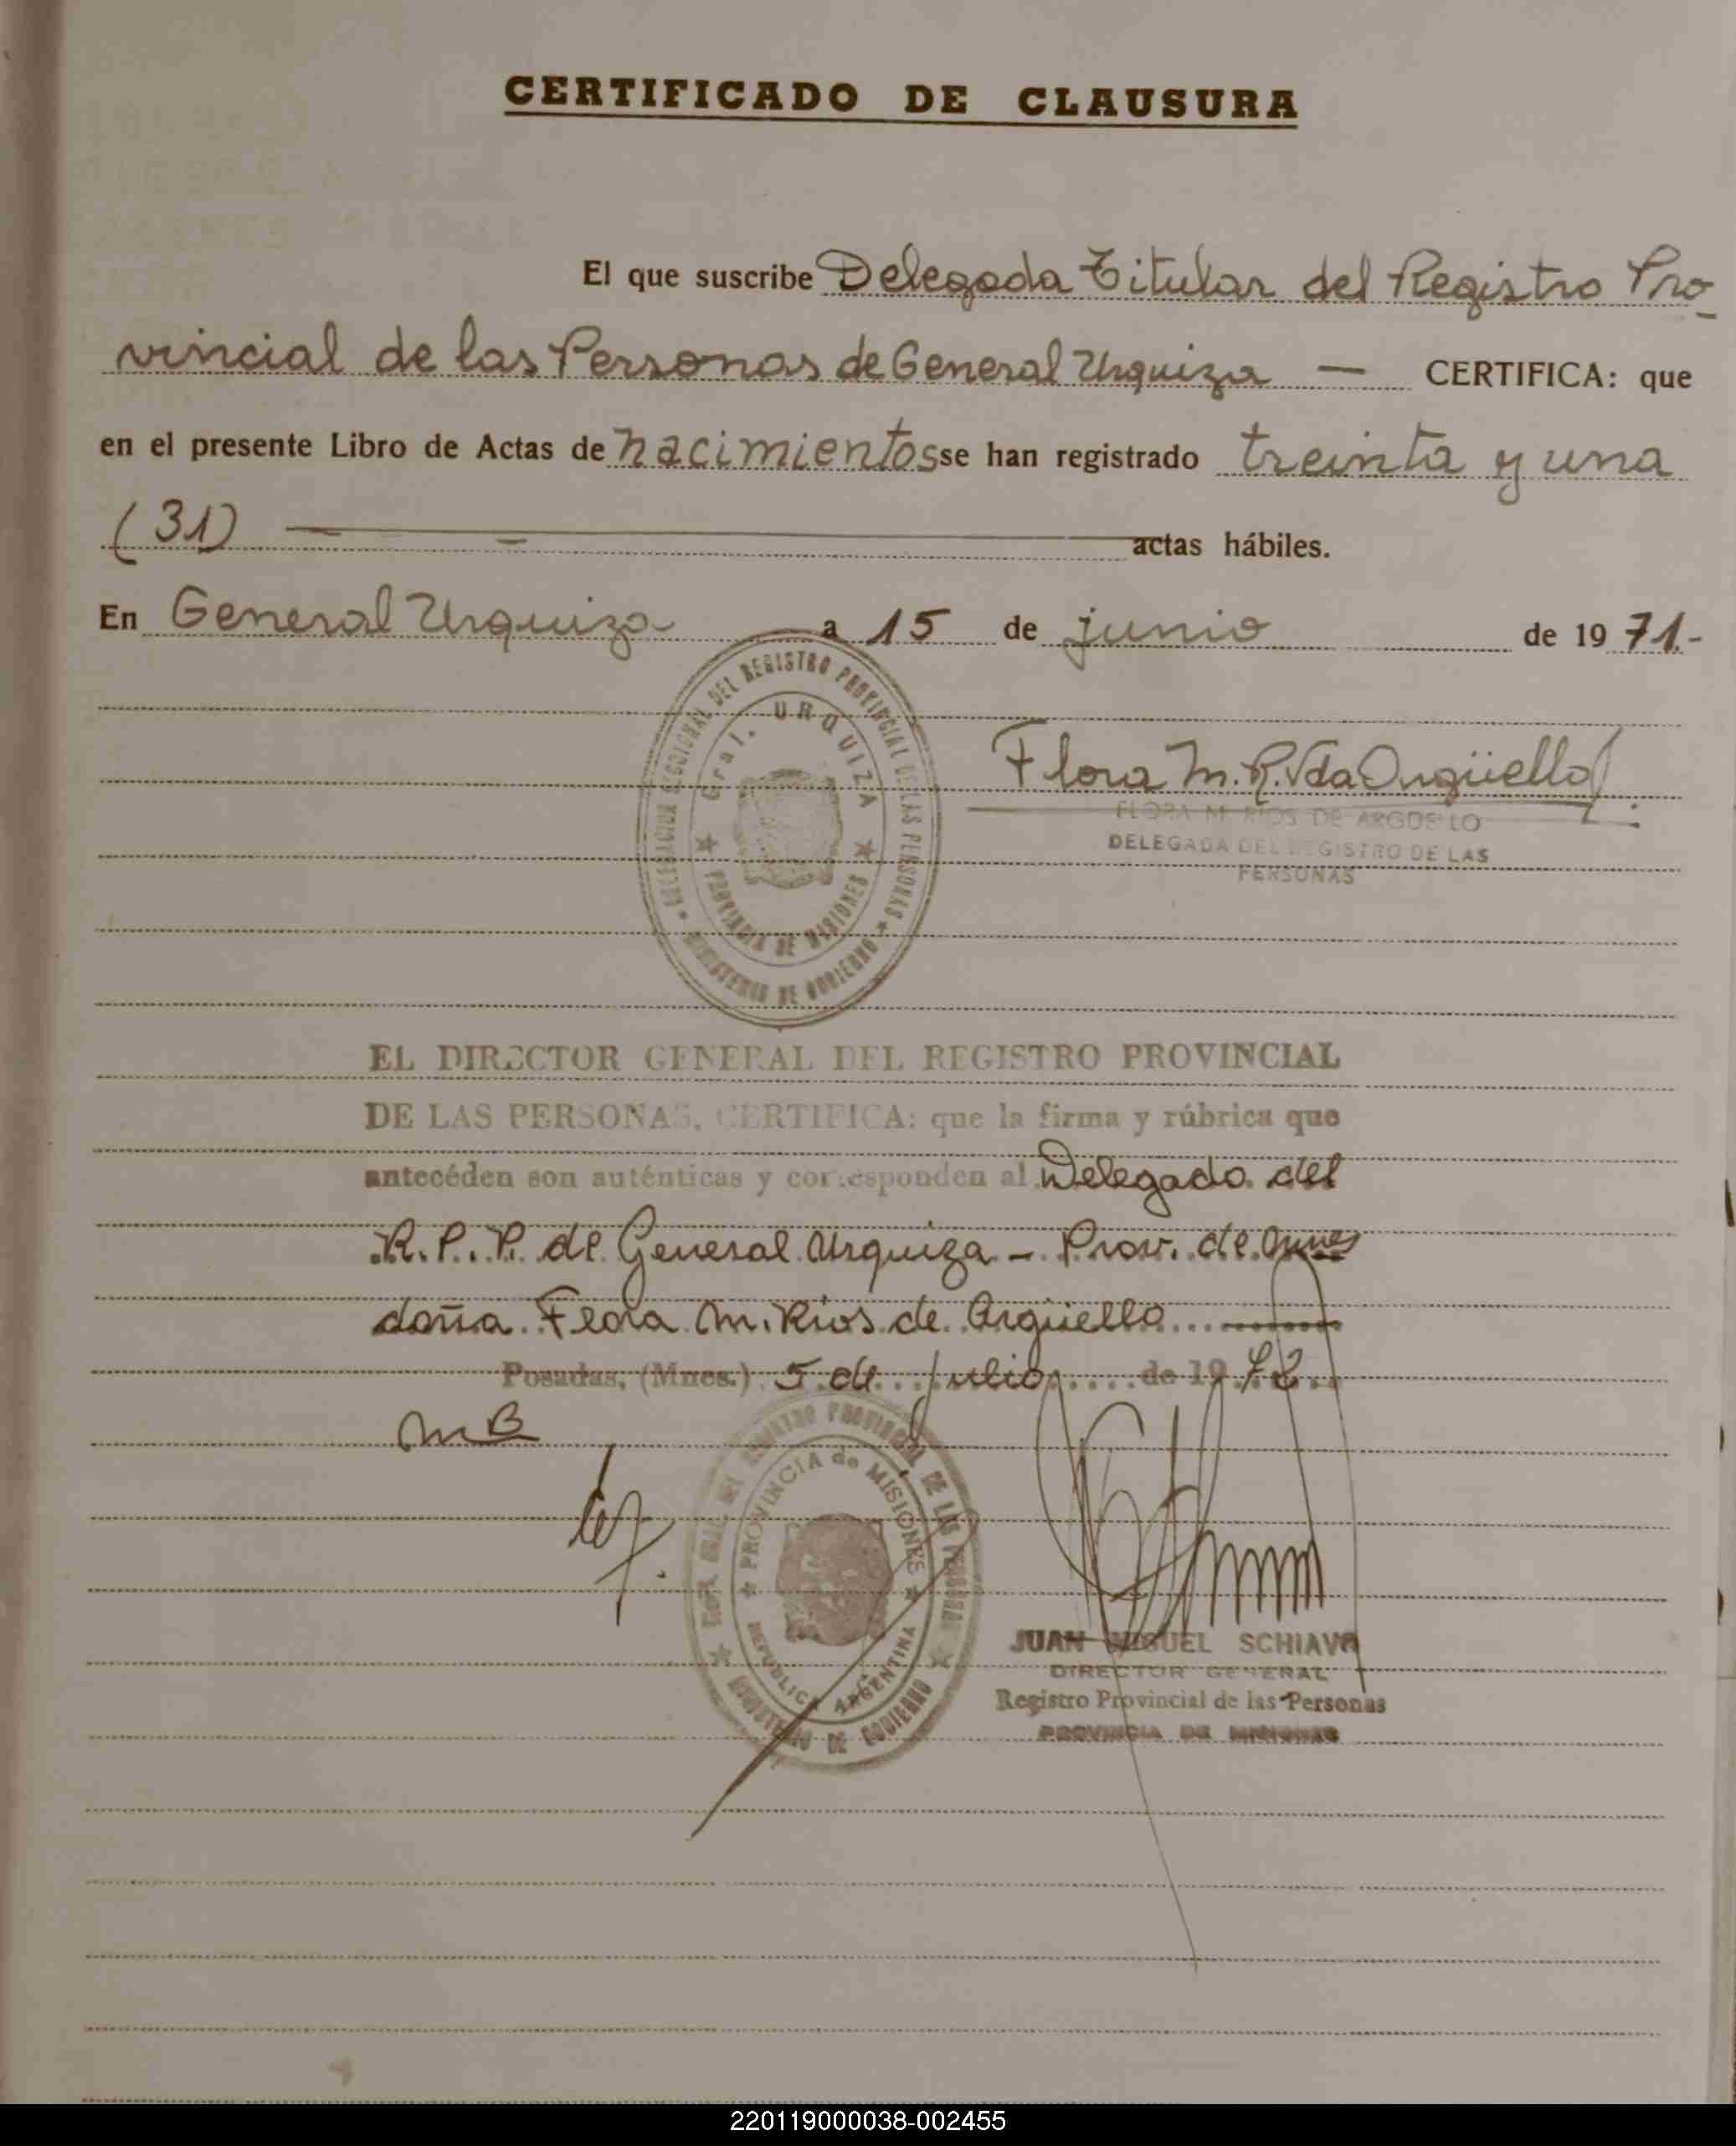 CERTIFICADO DE CLAUSURA
El que suscribe Delegada Titular del Registro Pro-
vincial de las Personas de General Urquiza — CERTIFICA: que
en el presente Libro de Actas de nacimientos se han registrado treinta y una
(31) actas hábiles.
En General Urquiza a 15 de junio de 1971.-
DEL REGISTRO PROVINCIAL DE LAS PERSONAS
Gral. URQUIZA
PROVINCIA DE MISIONES
MINISTERIO DE GOBIERNO
Flora M. R. Vda Argüello
FLORA M RIOS DE ARGUELLO
DELEGADA DEL REGISTRO DE LAS
PERSONAS
EL DIRECTOR GENERAL DEL REGISTRO PROVINCIAL
DE LAS PERSONAS, CERTIFICA: que la firma y rúbrica que
antecéden son auténticas y corresponden al Delegado del
R.P.P. de General Urquiza - Prov. de Mnes
doña Flora M. Rios de Argüello
Posadas, (Mnes.) 5 de Julio de 1972
MB
REGISTRO PROVINCIAL DE LAS PERSONAS
PROVINCIA de MISIONES
REPUBLICA ARGENTINA
MINISTERIO DE GOBIERNO
JUAN MIGUEL SCHIAVO
DIRECTOR GENERAL
Registro Provincial de las Personas
PROVINCIA DE MISIONES
220119000038-002455